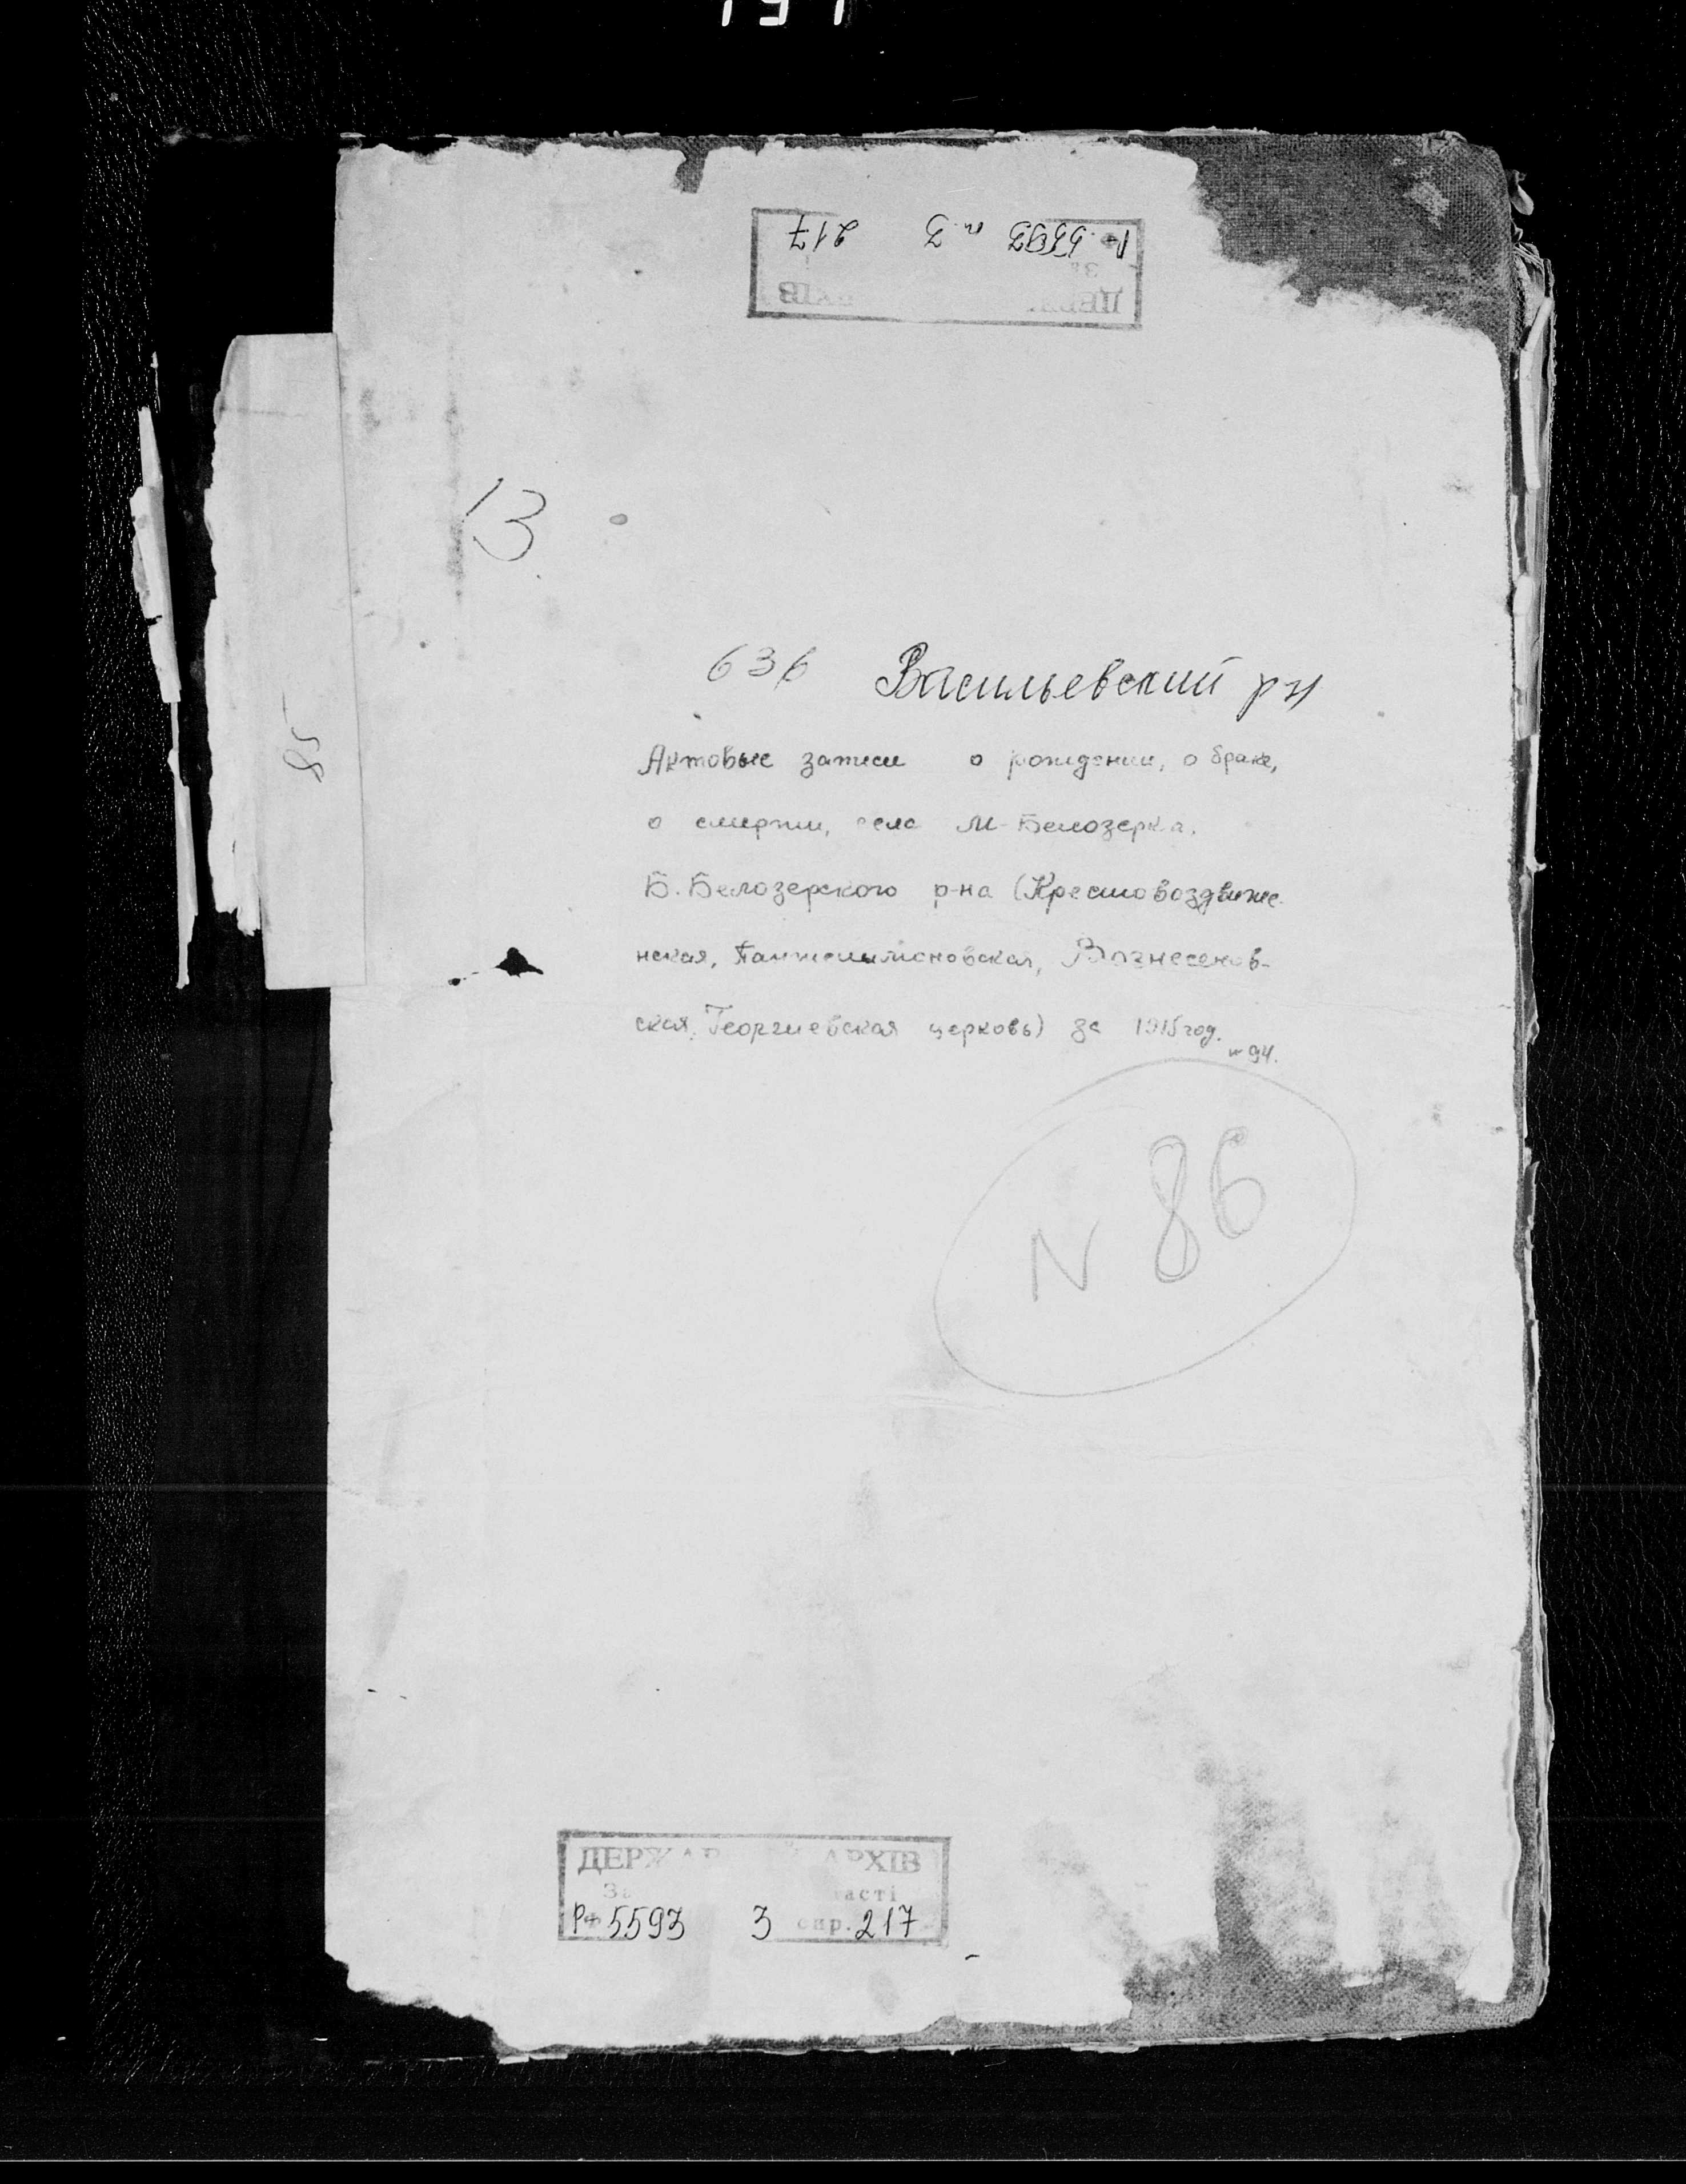 13
636 Васильевский р-н
Актовые записи о рождении, о браке,
о смерти, села М-Белозерка,
Б. Белозерского р-на (Крестовоздвиже-
нская, Пантелимоновская, Вознесенов-
ская, Георгиевская церковь) за 1915 год.
94.
N 86
85
ДЕРЖАР АРХІВ
За асті
Рф 5593 3 спр. 217